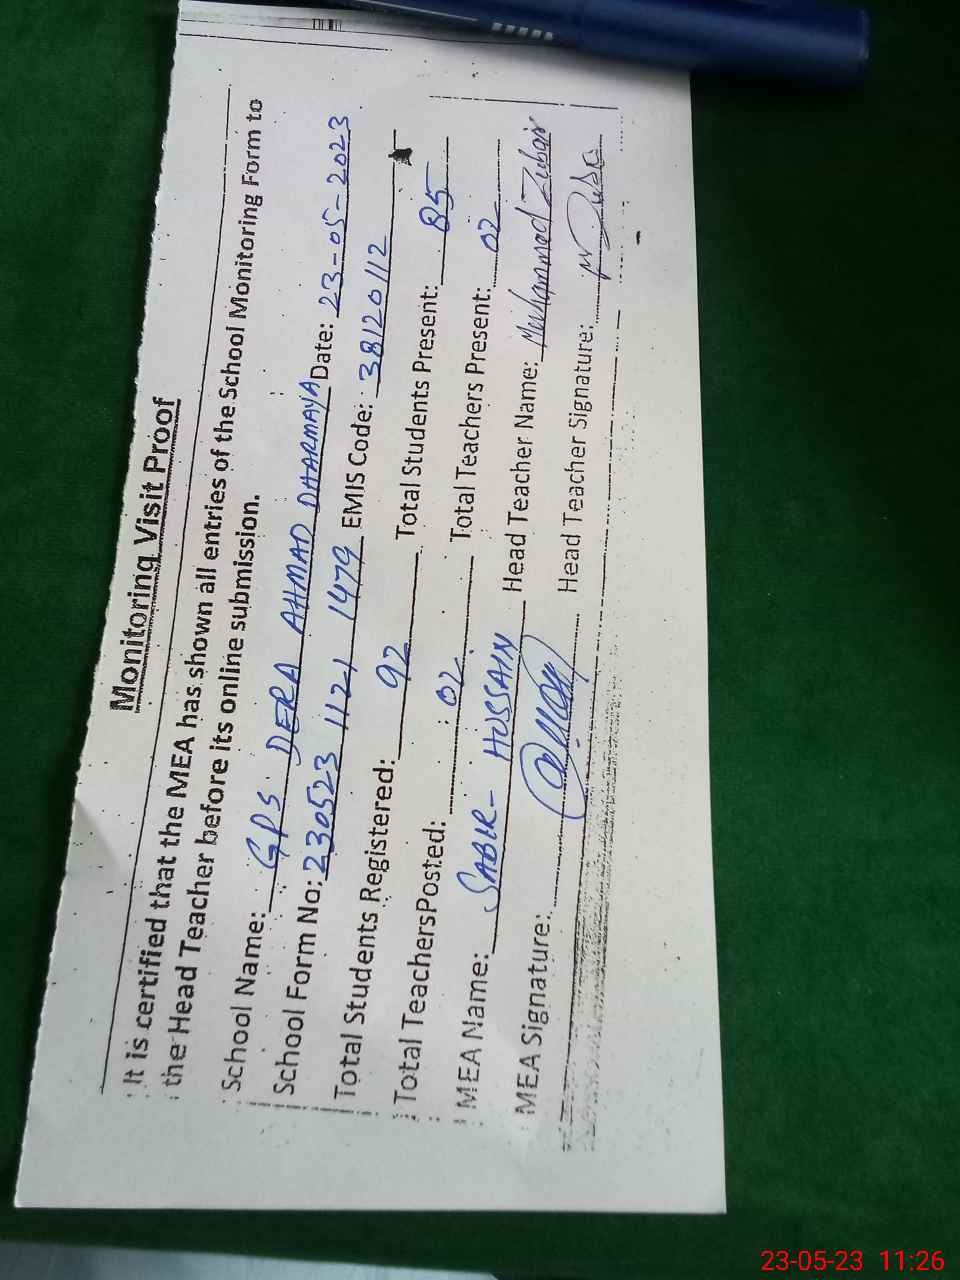 Monitoring Visit Proof
It is certified that the MEA has shown all entries of the School Monitoring Form to
the Head Teacher before its online submission.
School Name: GPS DERA AHMAD DHARMAYA Date: 23-05-2023
School Form No: 230523 1121 1479 EMIS Code: 38120112
Total Students Registered: 92 Total Students Present: 85
Total TeachersPosted: 02 Total Teachers Present: 02
MEA Name: SABIR- HUSSAIN Head Teacher Name: Muhammad Zubair
MEA Signature: Head Teacher Signature:
23-05-23 11:26